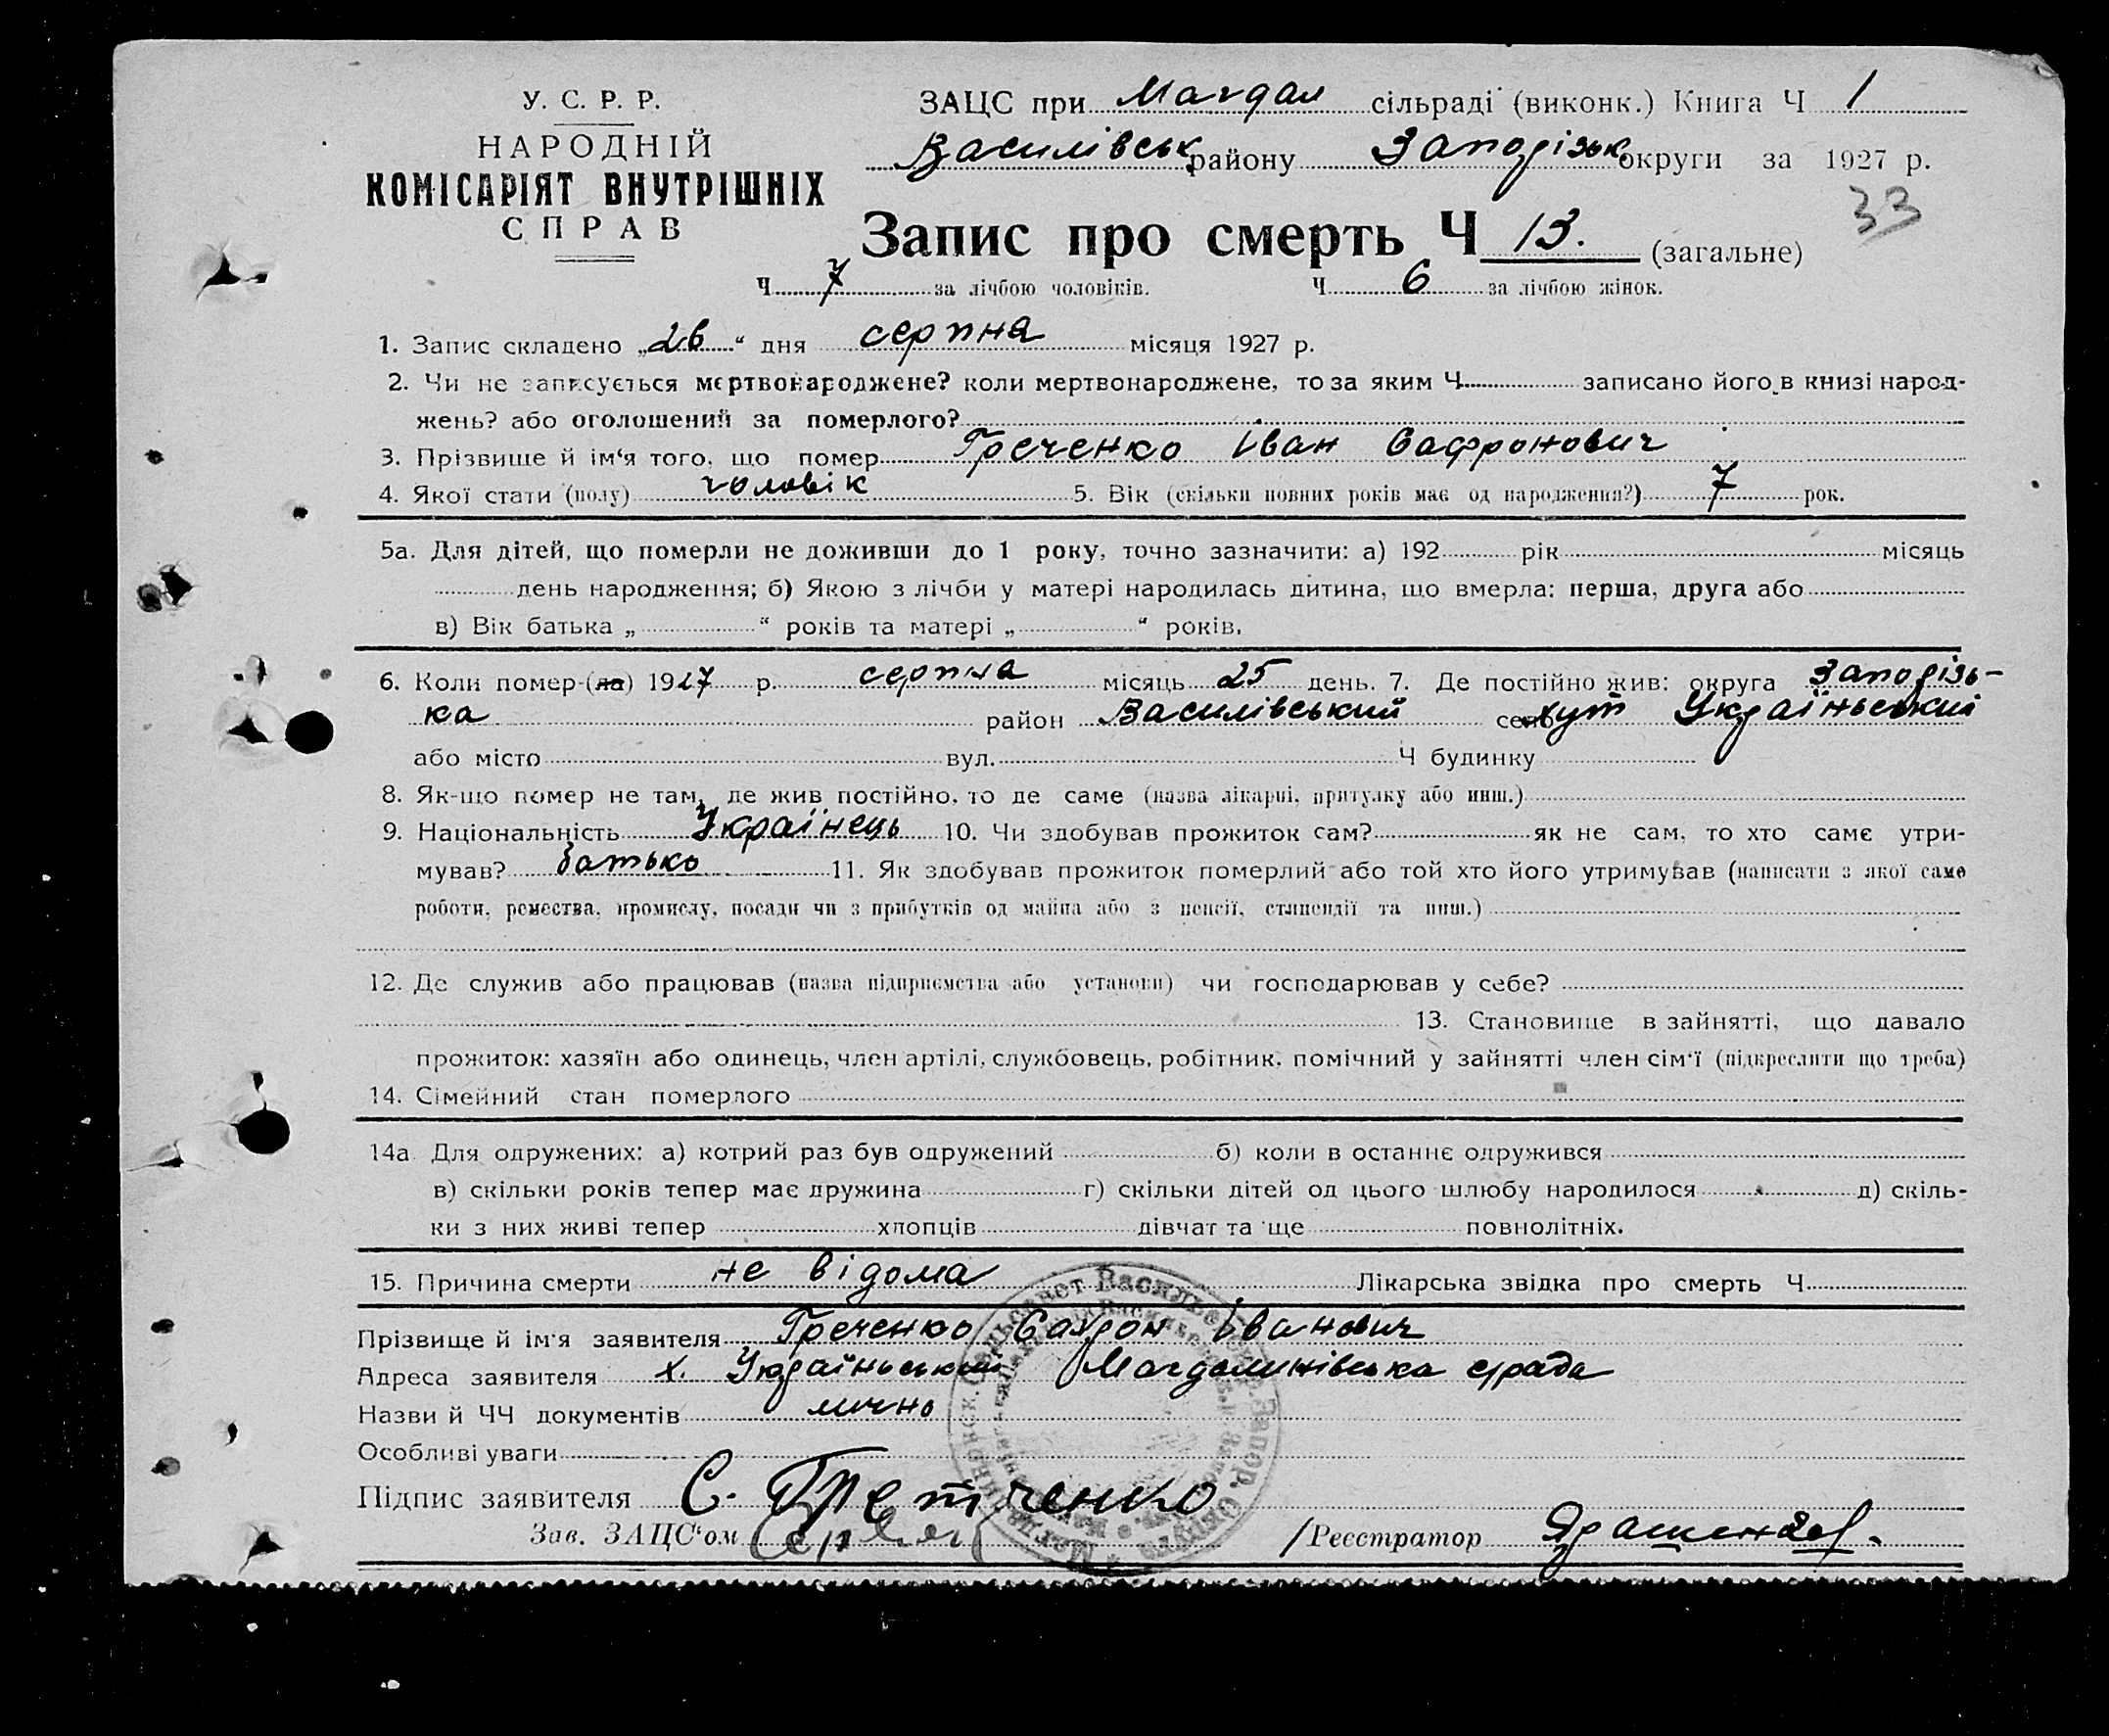 У. С. Р. Р.
НАРОДНІЙ
КОМІСАРІЯТ ВНУТРІШНІХ
СПРАВ
ЗАЦС при Магдал сільраді (виконк.) Книга Ч 1
Василівськ району Запорізьк округи за 1927 р.
33
Запис про смерть Ч 13. (загальне)
Ч 7 за лічбою чоловіків. Ч 6 за лічбою жінок.
1. Запис складено „26“ дня серпня місяця 1927 р.
2. Чи не записується мертвонароджене? коли мертвонароджене, то за яким Ч записано його в книзі народ-
жень? або оголошений за померлого?
3. Прізвище й ім‘я того, що помер Греченко Іван Сафронович
4. Якої стати (полу) чоловік 5. Вік (скільки повних років має од народження?) 7 рок.
5а. Для дітей, що померли не доживши до 1 року, точно зазначити: а) 192 рік місяць
день народження; б) Якою з лічби у матері народилась дитина, що вмерла: перша, друга або
в) Вік батька „ “ років та матері „ “ років.
6. Коли помер-(ла) 1927 р. серпня місяць 25 день. 7. Де постійно жив: округа Запорізь-
ка район Василівський село хут Український
або місто вул. Ч будинку
8. Як-що помер не там, де жив постійно, то де саме (назва лікарні, притулку або инш.)
9. Національність Українець 10. Чи здобував прожиток сам? як не сам, то хто саме утри-
мував? батько 11. Як здобував прожиток померлий або той хто його утримував (написати з якої саме
роботи, ремества, промислу, посади чи з прибутків од майна або з пенсії, стипендії та инш.)
12. Де служив або працював (назва підприємства або установи) чи господарював у себе?
13. Становище в зайнятті, що давало
прожиток: хазяїн або одинець, член артілі, службовець, робітник, помічний у зайнятті член сім‘ї (підкреслити що треба)
14. Сімейний стан померлого
14а Для одружених: а) котрий раз був одружений б) коли в останнє одружився
в) скільки років тепер має дружина г) скільки дітей од цього шлюбу народилося д) скіль-
ки з них живі тепер хлопців дівчат та ще повнолітніх.
15. Причина смерти не відома Лікарська звідка про смерть Ч
Прізвище й ім‘я заявителя Греченко Сафрон Іванович
Адреса заявителя х. Український Магдалинівська с/рада
Назви й ЧЧ документів лично
Особливі уваги
Підпис заявителя С. Гретченко
Зав. ЗАЦС‘ом /Реєстратор